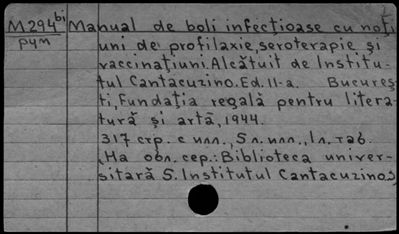 M294bi Manual de boli infecţioase cu noţi
рум uni de profilaxie, seroterapie şi
vaccinaţiuni. Alcătuit de Institu-
tul Cantacuzino. Ed. II-a. Bucureş-
ti, Fundaţia regală pentru litera-
tură şi artă, 1944.
317 стр. с илл., 5 л. илл., 1 л. таб.
(На обл. сер.: Biblioteca univer-
sitară S. Institutul Cantacuzino.)